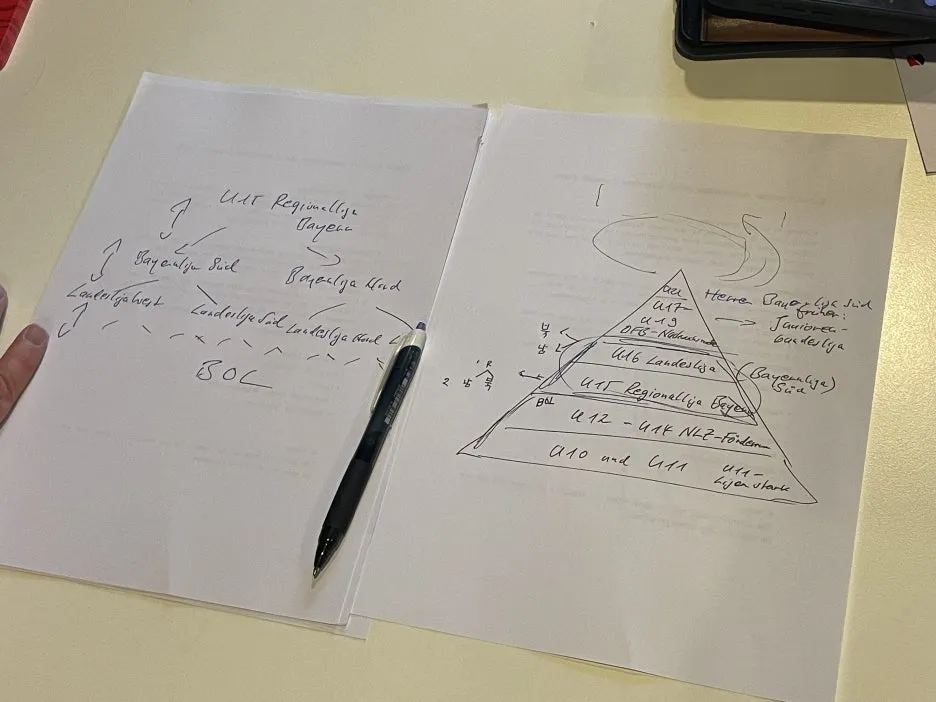 U15 Regionalliga
Bayern
Bayernliga Süd
Bayernliga Nord
Landesliga West
Landesliga Süd
Landesliga Nord
BOL
U17-
U19
DFB-Nachwuchs
Herren Bayernliga Süd
früher:
Junioren-
bundesliga
북
남
U16 Landesliga
(Bayernliga)
Süd
R
2 남 북
U15 Regionalliga Bayern
BOL
U12 - U14 NLZ-Förderu
U10 und U11
U11-
Ligen stark